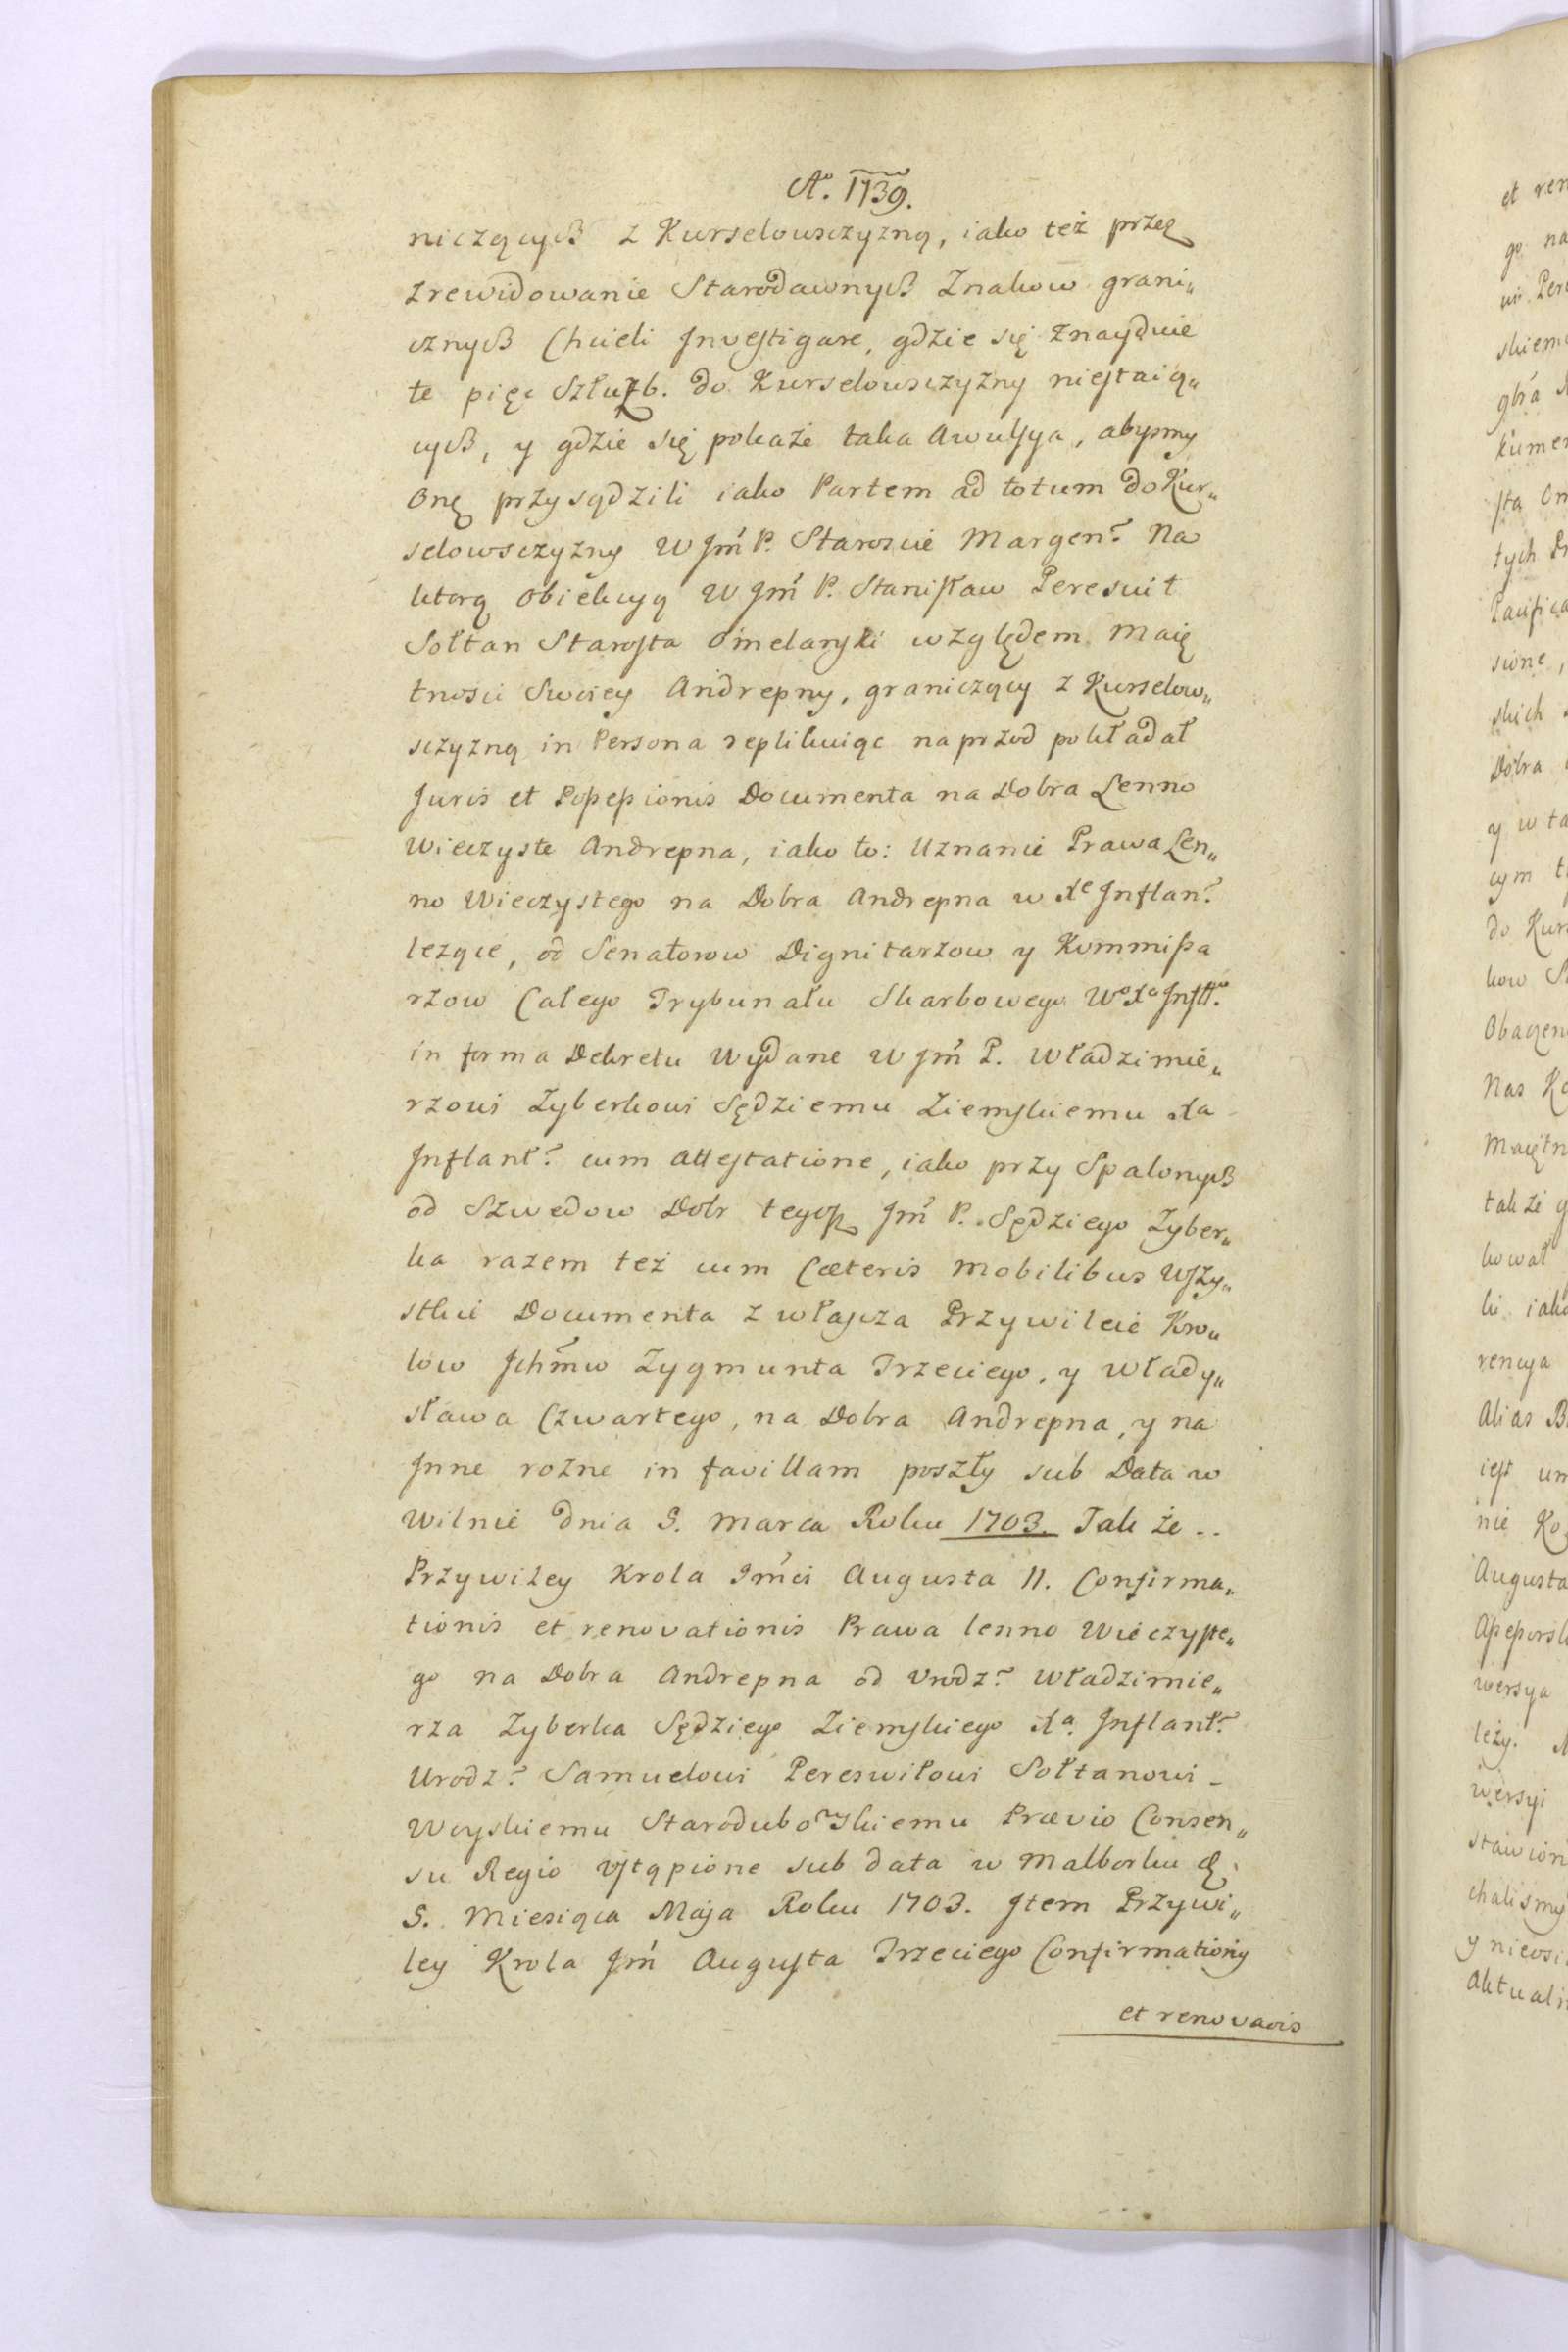 Aº. 1739.
niczących z Kurselowsczyzną, iako też przez
zrewidowanie Starodawnych Znakow grani„
cznych Chcieli Investigare, gdzie się znayduie
te pięc Szłużb. do Kurselowsczyzny niestaią„
cych, y gdzie się pokaże taka Awulsya, abysmy
Onę przysądzili iako Partem ad totum do Kur„
selowsczyzny W Jm̃ P. Staroscie Margen? Na
ktorą Obiekcyą W Jm̃ P. Stanisław Pereswit
Sołtan Starosta Omelanski względem Maię
tnosci Swoiey Andrepny, graniczący z Kurselow„
sczyzną in Persona replikuiąc naprzod pokładał
Juris et Possessionis Documenta na Dobra Lenno
Wieczyste Andrepna, iako to: Uznanie Prawa Len„
no Wieczystego na Dobra Andrepna w Xe Inflan?
lezące, od Senatorow Dignitarzow y Kommissa
rzow Całego Trybunału Skarbowego Wº Xª Inflt.
in forma Dekretu Wydane W Jm̃ P. Władzimie„
rzowi Zyberkowi Sędziemu Ziemskiemu Xa
Inflant? cum Attestatione, iako przy Spalonych
od Szwedow Dobr tegoż Jm̃ P. Sędziego Zyber„
ka razem też cum Cæteris Mobilibus Wszy„
stkie Documenta zwłascza Przywileie Kro„
low Ichm̃w Zygmunta Trzeciego, y Włady„
sława Czwartego, na Dobra Andrepna, y na
Inne rozne in favillam poszły sub Data w
Wilnie dnia 3. Marca Roku 1703. Tak że ..
Przywiley Krola Jm̃ci Augusta II. Confirma„
tionis et renovationis Prawa lenno Wieczyste„
go na Dobra Andrepna od Urodz? Władzimie„
rza Zyberka Sędziego Ziemskiego Xª. Inflant?
Urodz? Samuelowi Pereswitowi Sołtanowi -
Woyskiemu Starodubowskiemu Prævio Consen„
su Regio ustąpione sub data w Malborku d.
5. Miesiąca Maja Roku 1703. Item Przywi„
ley Krola Jm̃ Augusta Trzeciego Confirmationis
et renovaõis
et ren
go na
skiem
kumen
sta Om
tych
Pacifica
sione,
skich
Dobra
y w ta
cym t
do Kur
kow
Obaczen
Nas Ko
Maiętn
także g
kował
ki iako
rencya
Alias B
iest um
nie Ko
Augusta
wersya
leży.
wersyi
stawion
chalismy
y nieosi
Aktualn